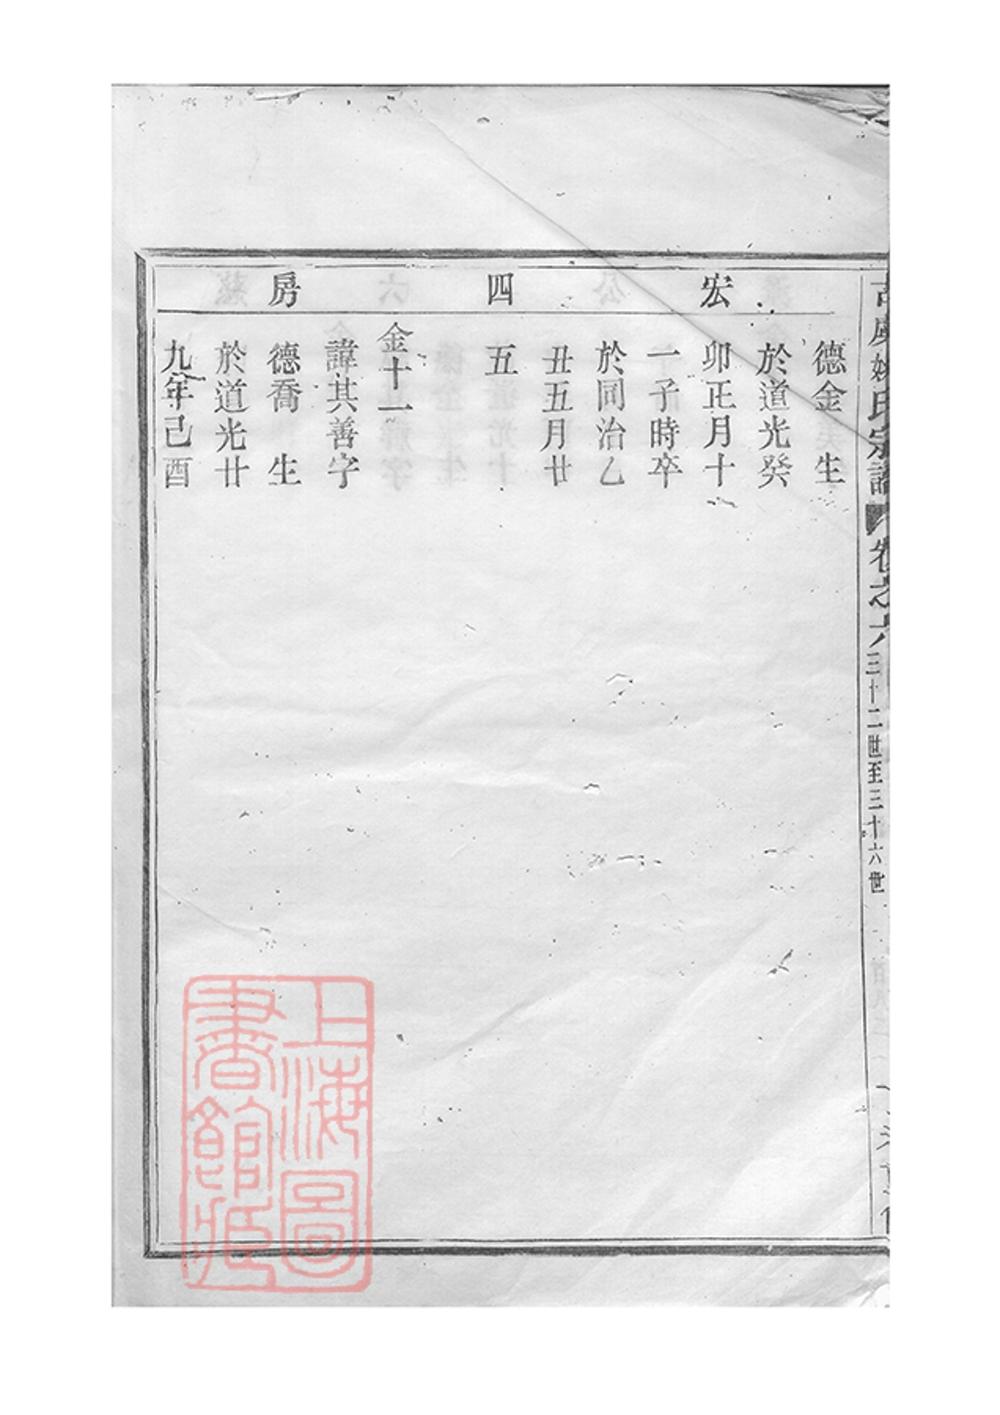 姚氏宗譜 卷之六 三十二世至三十六世
宏四房
德金 生
於道光癸
卯正月十
一子時卒
於同治乙
丑五月廿
五
金十一
諱其善字
德喬 生
於道光廿
九年己酉
上海圖
書館藏